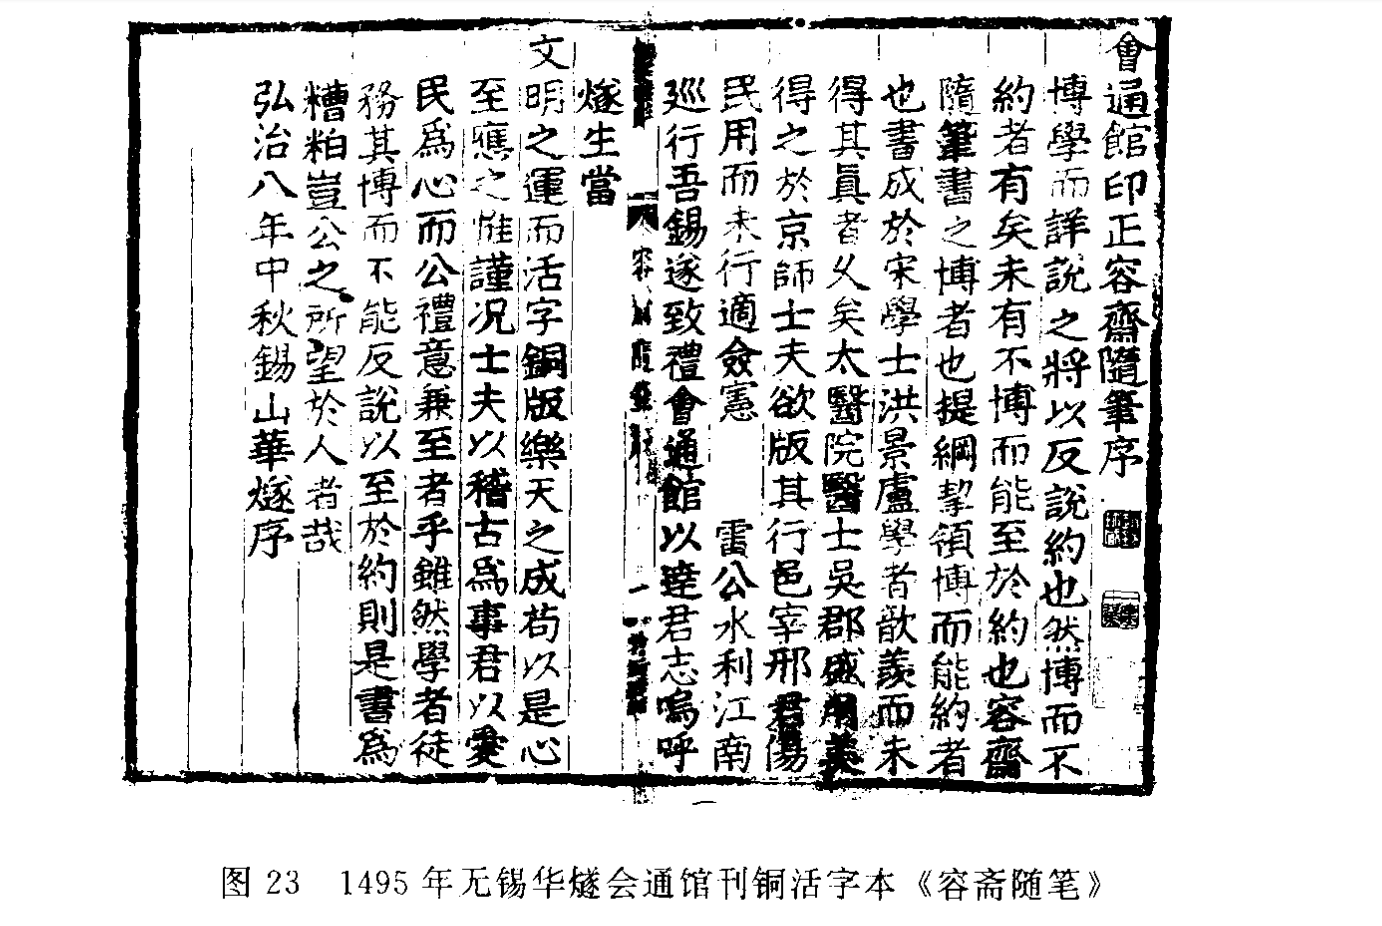 會通館印正容齋隨筆序
博學而詳説之將以反説約也然博而不
約者有矣未有不博而能至於約也容齋
隨筆書之博者也提綱挈領博而能約者
也書成於宋學士洪景盧學者歆羨而未
得其眞者久矣太醫院醫士吳郡盛用美
得之於京師士夫欲版其行邑宰邢君傷
民用而未行適僉憲 雷公水利江南
廵行吾錫遂致禮會通館以達君志嗚呼
燧生當
文明之運而活字銅版樂天之成苟以是心
至應之惟謹况士夫以稽古爲事君以愛
民爲心而公禮意兼至者乎雖然學者徒
務其博而不能反説以至於約則是書爲
糟粕豈公之所望於人者哉
弘治八年中秋錫山華燧序
图 23 1495 年无锡华燧会通馆刊铜活字本《容斋随笔》